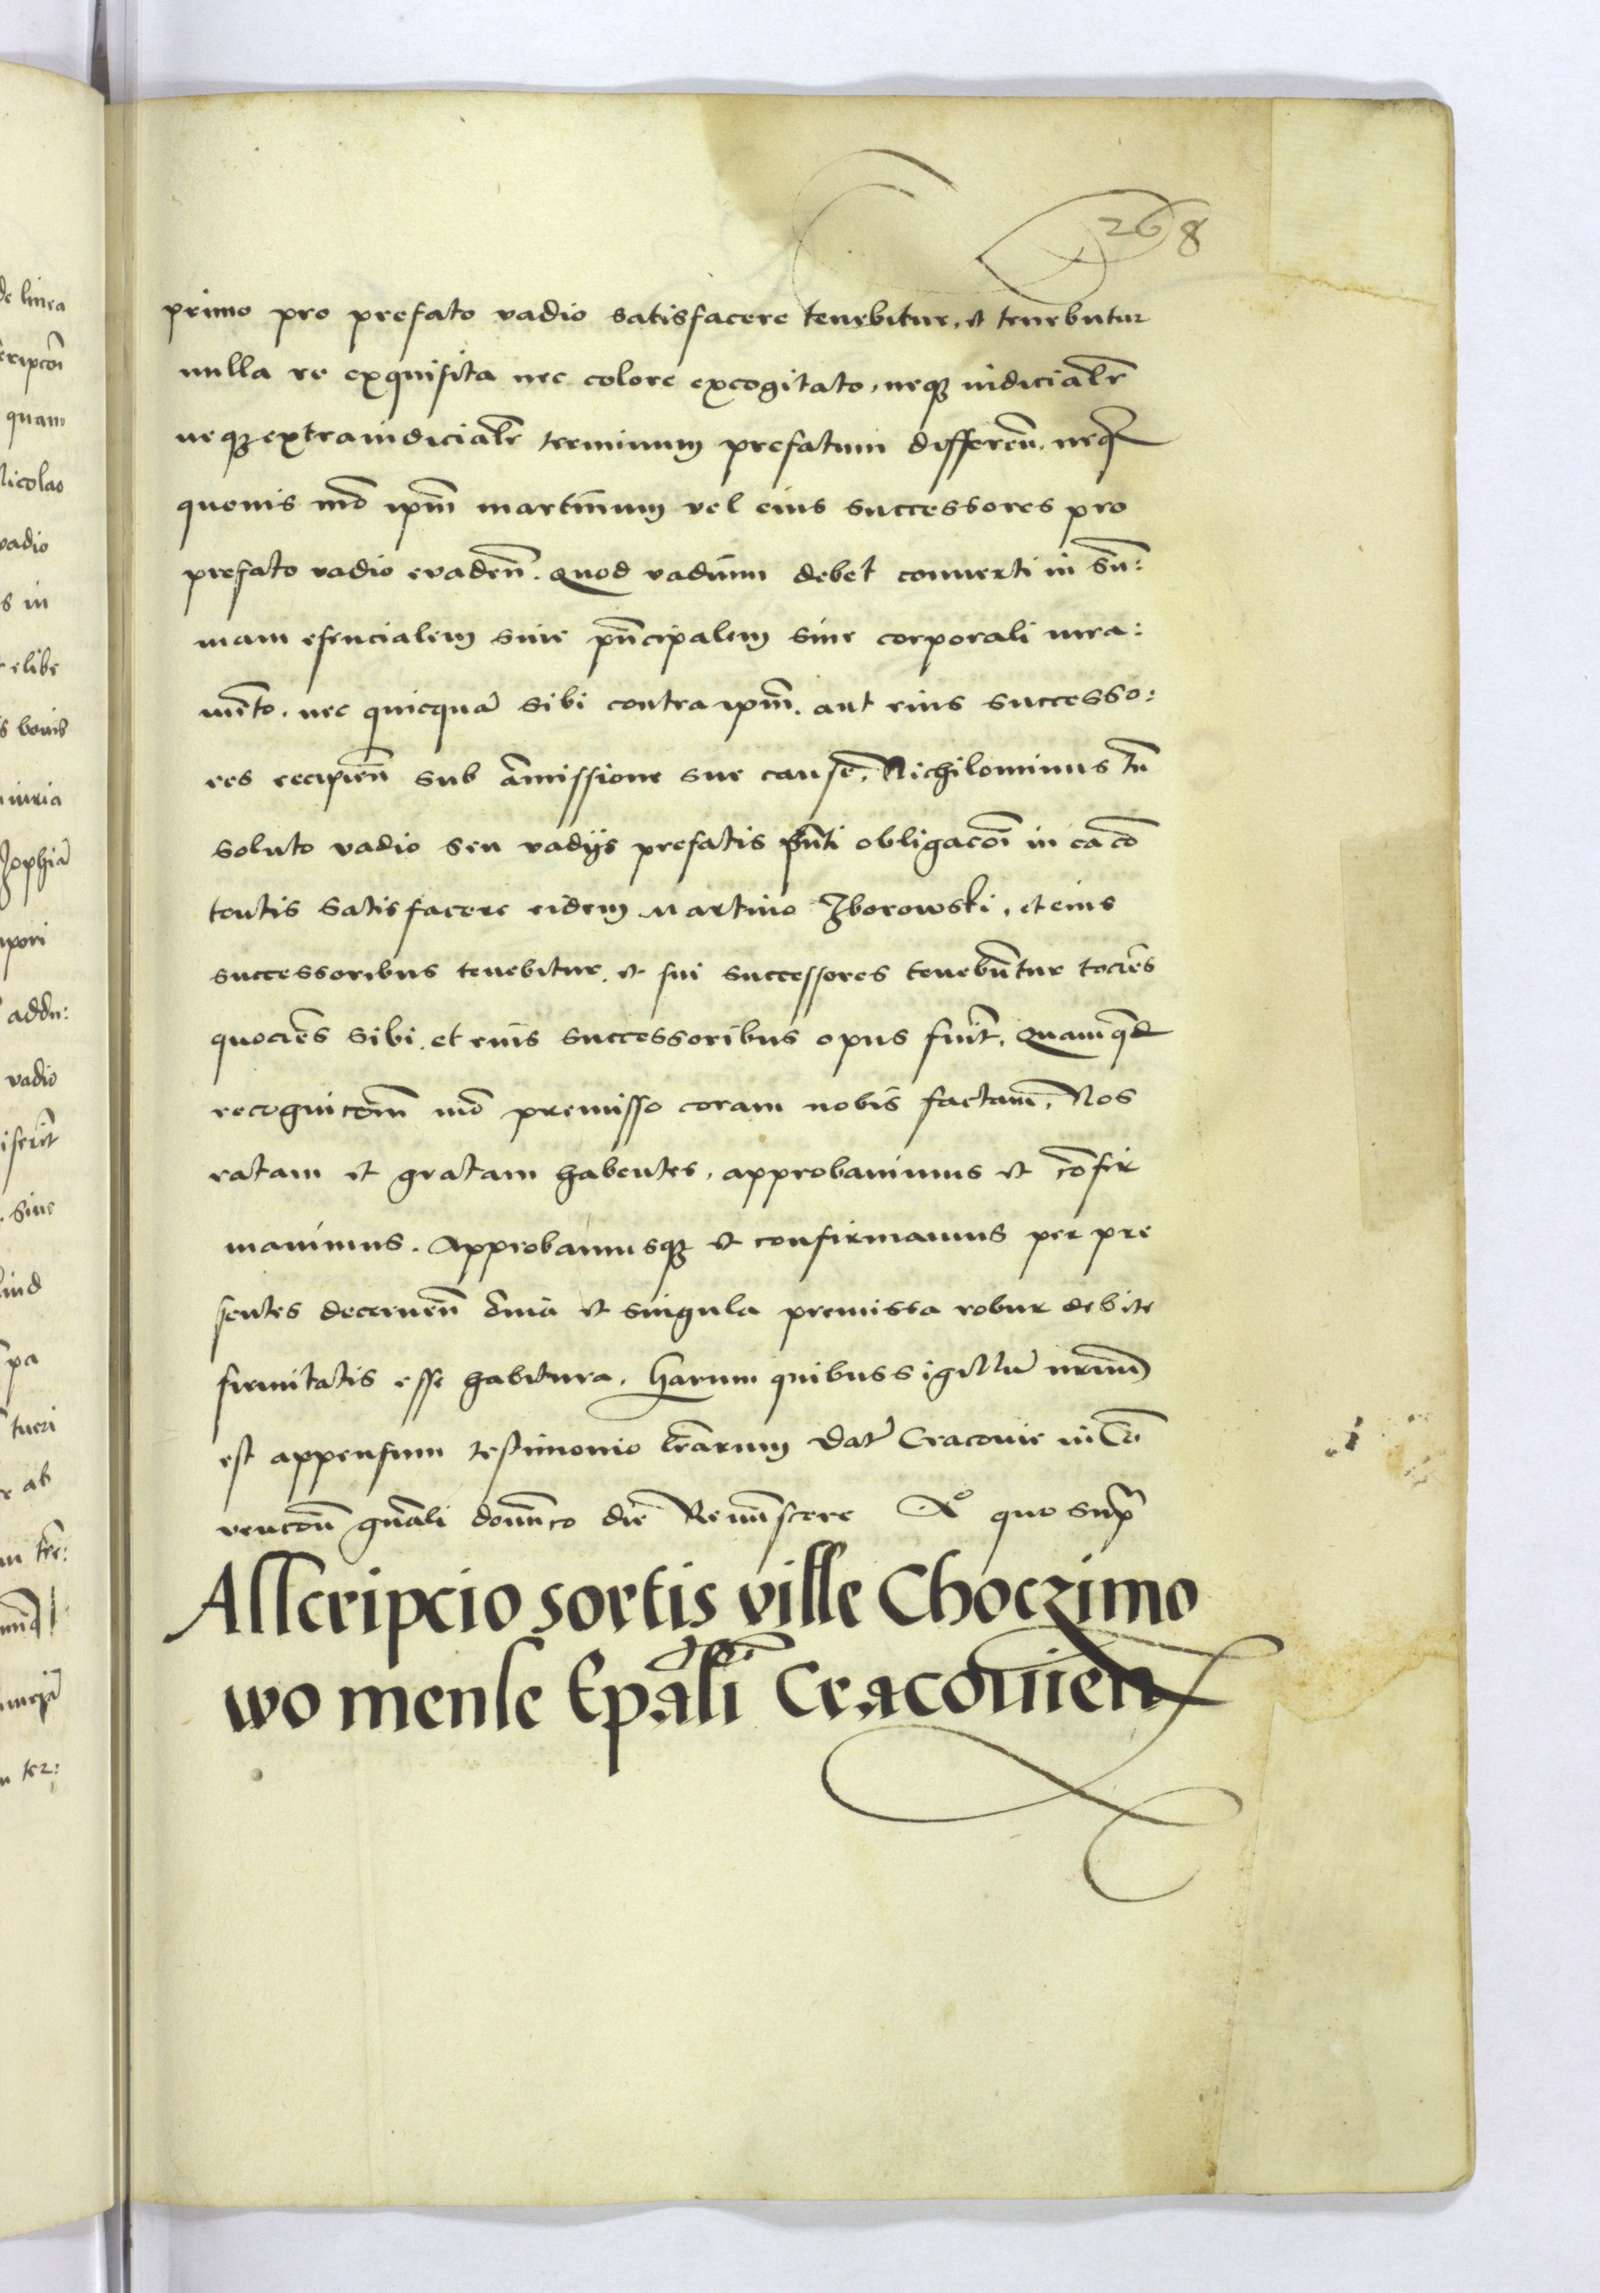 268
primo pro prefato vadio satisfacere tenebitur, et tenebutur
nulla re exquisita nec colore excogitato, neqꝫ iudicialr̃
neqꝫ extraiudicialr̃ terminum prefatum differeñ. neqꝫ
quouis mõ ip̃m martinum vel eius successores pro
prefato vadio evadeñ. Quod vadium debet conuerti in sũ:
mam esencialem siue pñcipalem sine corporali iura:
mẽto. nec quicquã sibi contra ip̃m. aut eius successo:
res recipieñ sub amissione sue cause. Nichilominus tñ
soluto vadio seu vadijs prefatis pñti obligacõi in ea cõ
tentis satisfacere eidem Martino Zborowski, et eius
successoribus tenebitur, et sui successores tenebũtur tociẽs
quociẽs sibi, et eius successoribus opus fuit̃. Quamqꝫ
recognicõem mõ premisso coram nobis factam̃. Nos
ratam et gratam habentes, approbauimus et cõfir
mauimus. Approbamusqꝫ et confirmamus per pre
sentes decerneñ õmia et singula premissa robur debite
firmitatis esse habitura. Harum quibus sigillũ nrũm
est appensum testimonio lr̃arum Dat̃ Cracouie in Cõ
vencõñ gñali domĩco die Reminiscere Aº quo sup̃
Asscripcio sortis ville Choczimo
wo mense Ep̃ali Cracouieñ
de linea
cripcõi
quam
Nicolao
vadio
s in
elibe
s bonis
iuria
Zophiã
addu:
vadio
siue
pa
tueri
ab